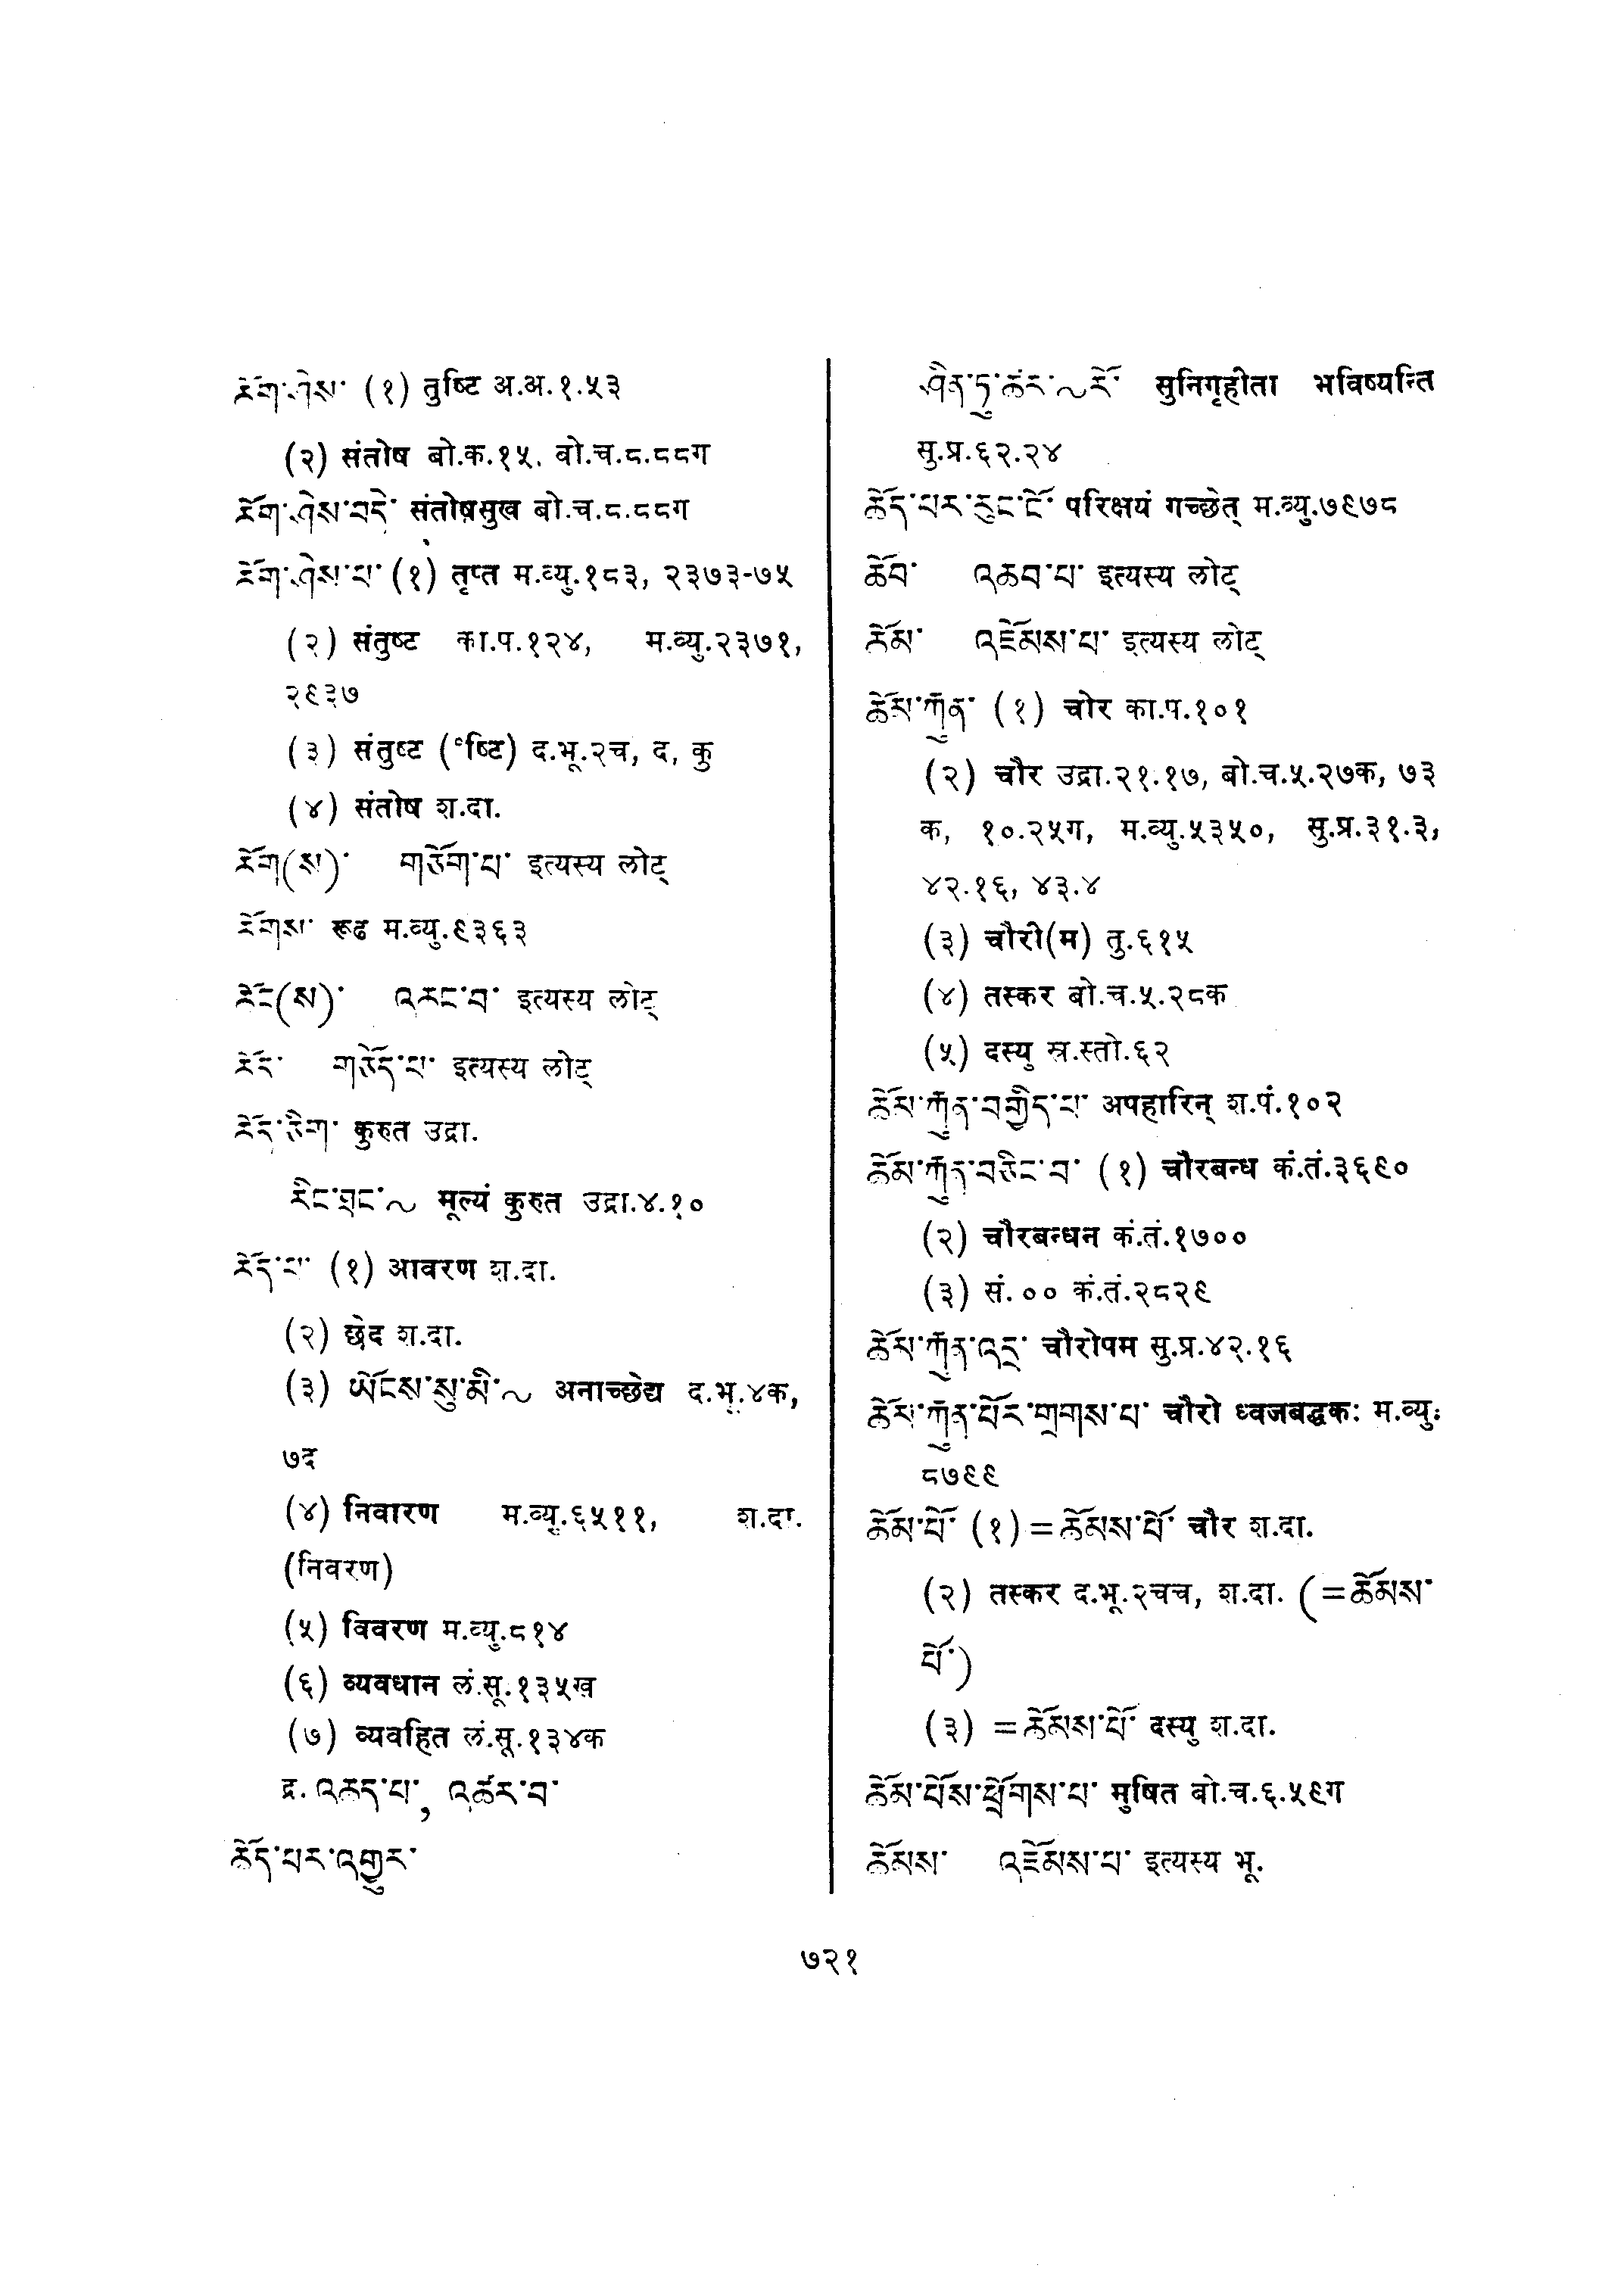 ཆོག་ཤེས་ (१) तुष्टि अ.अ.१.५३
(२) संतोष बो.क.१५. बो.च.८.८८ग
ཆོག་ཤེས་བདེ་ संतोषसुख बो.च.८.८८ग
ཆོག་ཤེས་པ་ (१) तृप्त म.व्यु.१८३, २३७३-७५
(२) संतुष्ट का.प.१२४, म.व्यु.२३७१,
२९३७
(३) संतुष्ट (°ष्टि) द.भू.२च, द, कु
(४) संतोष श.दा.
ཆོག(ས)་ གཅོག་པ་ इत्यस्य लोट्
ཆོགས་ रूढ म.व्यु.९३६३
ཆོང(ས)་ འཆང་བ་ इत्यस्य लोट्
ཆོད་ གཅོད་པ་ इत्यस्य लोट्
ཆོད་ཅིག་ कुरुत उद्रा.
རིང་ཐང་~ मूल्यं कुरुत उद्रा.४.१०
ཆོད་པ་ (१) आवरण श.दा.
(२) छेद श.दा.
(३) ཡོངས་སུ་མི་~ अनाच्छेद्य द.भू.४क,
७द
(४) निवारण म.व्यु.६५११, श.दा.
(निवरण)
(५) विवरण म.व्यु.८१४
(६) व्यवधान लं.सू.१३५ख
(७) व्यवहित लं.सू.१३४क
द्र. འཆད་པ་, འཚར་བ་
ཆོད་པར་འགྱུར་
ཤིན་ཏུ་ཚར་~རོ་ सुनिगृहीता भविष्यन्ति
सु.प्र.६२.२४
ཆོད་པར་རུང་ངོ་ परिक्षयं गच्छेत् म.व्यु.७९७८
ཆོབ་ འཆབ་པ་ इत्यस्य लोट्
ཆོམ་ འཇོམས་པ་ इत्यस्य लोट्
ཆོམ་རྐུན་ (१) चोर का.प.१०१
(२) चौर उद्रा.२१.१७, बो.च.५.२७क, ७३
क, १०.२५ग, म.व्यु.५३५०, सु.प्र.३१.३,
४२.१६, ४३.४
(३) चौरो(म) तु.६१५
(४) तस्कर बो.च.५.२८क
(५) दस्यु स्र.स्तो.६२
ཆོམ་རྐུན་བགྱིད་པ་ अपहारिन् श.पं.१०२
ཆོམ་རྐུན་བཅིང་བ་ (१) चौरबन्ध कं.तं.३६९०
(२) चौरबन्धन कं.तं.१७००
(३) सं.०० कं.तं.२८२९
ཆོམ་རྐུན་འདྲ་ चौरोपम सु.प्र.४२.१६
ཆོམ་རྐུན་པོར་གྲགས་པ་ चौरो ध्वजबद्धकः म.व्युः
८७९९
ཆོམ་པོ་ (१) =ཆོམས་པོ་ चौर श.दा.
(२) तस्कर द.भू.२चच, श.दा. (=ཆོམས་
པོ་)
(३) =ཆོམས་པོ་ दस्यु श.दा.
ཆོམ་པོས་ཕྲོགས་པ་ मुषित बो.च.६.५९ग
ཆོམས་ འཇོམས་པ་ इत्यस्य भू.
७२१